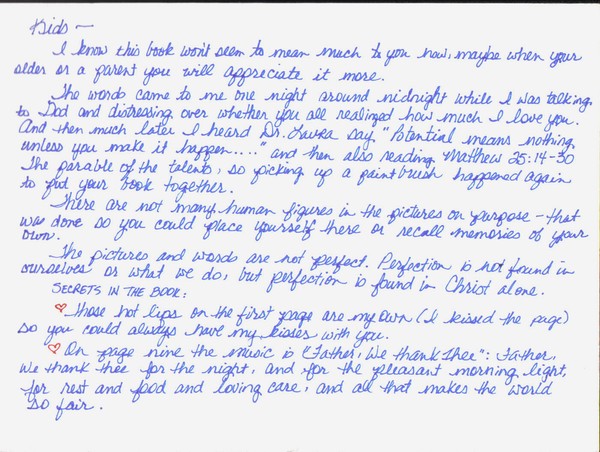 Kids —
I know this book won't seem to mean much to you now, maybe when your
older or a parent you will appreciate it more.
The words came to me one night around midnight while I was talking
to Dad and distressing over whether you all realized how much I love you.
And then much later I heard Dr. Laura say "Potential means nothing
unless you make it happen...." and then also reading Matthew 25:14-30
The parable of the talents, so picking up a paint brush happened again
to put your book together.
There are not many human figures in the pictures on purpose - that
was done so you could place yourself there or recall memories of your
own.
The pictures and words are not perfect. Perfection is not found in
ourselves or what we do, but perfection is found in Christ alone.
SECRETS IN THE BOOK:
♡ Those hot lips on the first page are my own (I kissed the page)
so you could always have my kisses with you.
♡ On page nine the music is "Father, We thank Thee": Father,
We thank thee for the night, and for the pleasant morning light,
for rest and food and loving care, and all that makes the world
so fair.